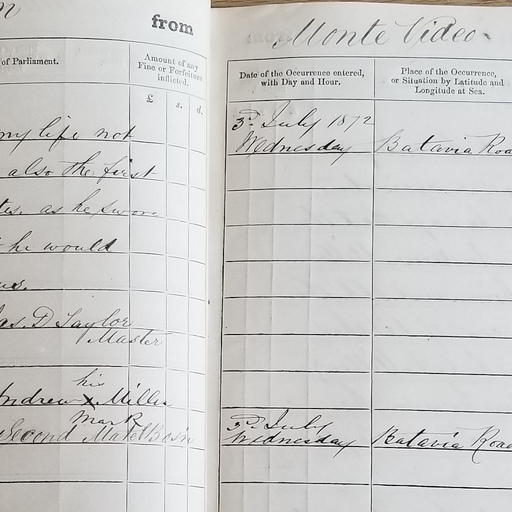 from
of Parliament.
Amount of any
Fine or Forfeiture
inflicted.
£ s. d.
my life not
also the first
as he swore
he would
Jas. D Taylor
Master
his
Andrew x Miller
mark
Second Mate & Bos'n
Monte Video
Date of the Occurrence entered,
with Day and Hour.
Place of the Occurrence,
or Situation by Latitude and
Longitude at Sea.
3rd July 1872
Wednesday Batavia Roa
3rd July
Wednesday Batavia Road